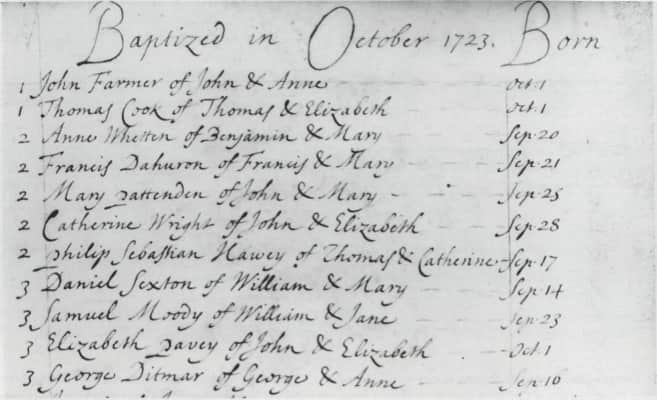 Baptized in October 1723. Born
1 John Farmer of John & Anne Oct. 1
1 Thomas Cook of Thomas & Elizabeth Oct. 1
2 Anne Whetten of Benjamin & Mary Sep. 20
2 Francis Dahuron of Francis & Mary Sep. 21
2 Mary Pattenden of John & Mary Sep. 25
2 Catherine Wright of John & Elizabeth Sep. 28
2 Philip Sebastian of Thomas & Catherine Sep. 17
3 Daniel Sexton of William & Mary Sep. 14
3 Samuel Moody of William & Jane Sep. 23
3 Elizabeth Pavey of John & Elizabeth Oct. 1
3 George Ditmar of George & Anne Sep. 16